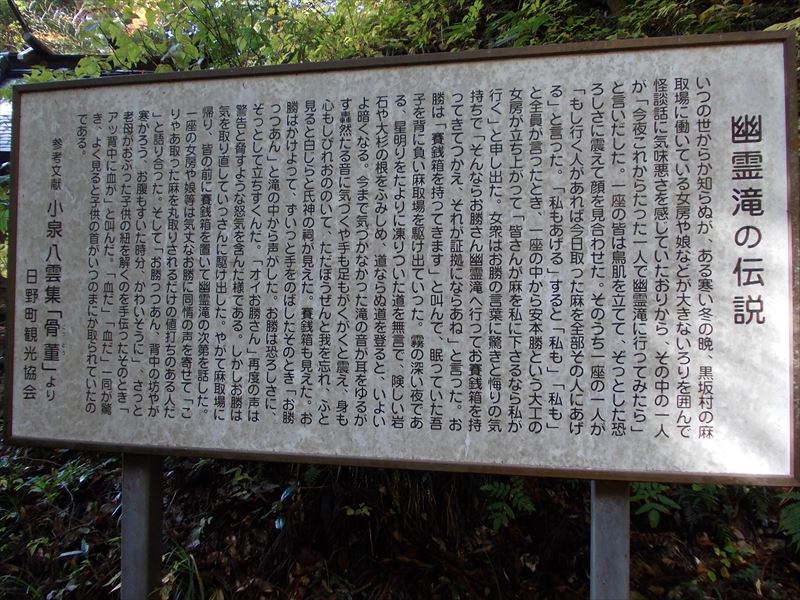 幽霊滝の伝説
いつの世からか知らぬが、ある寒い冬の晩、黒坂村の麻
取場に働いている女房や娘などが大きないろりを囲んで
怪談話に気味悪さを感じていたおりから、その中の一人
が「今夜これからたった一人で幽霊滝に行ってみたら」
と言いだした。一座の皆は鳥肌を立てて、ぞっとした恐
ろしさに震えて顔を見合わせた。そのうち一座の一人が
「もし行く人があれば今日取った麻を全部その人にあげ
る」と言った。「私もあげる」すると「私も」「私も」
と全員が言ったとき、一座の中から安本勝という大工の
女房が立ち上がって「皆さんが麻を私に下さるなら私が
行く」と申し出た。女衆はお勝の言葉に驚きと悔りの気
持ちで「そんならお勝さん幽霊滝へ行ってお賽銭箱を持
ってきてつかえ、それが証拠にならあね」と言った。お
勝は「賽銭箱を持ってきます」と叫んで、眠っていた吾
子を背に負い麻取場を駆け出ていった。霧の深い夜であ
る、星明りをたよりに凍りついた道を無言で、険しい岩
石や大杉の根をふみしめ、道ならぬ道を登ると、いよい
よ暗くなる。今まで気づかなかった滝の音が耳をゆるが
す轟然たる音に気づくや手も足もがくがくと震え、身も
心もしびれおののいて、ただぼうぜんと我を忘れ、ふと
見ると白じらと氏神の祠が見えた。賽銭箱も見えた。お
勝はかけよって、ずいっと手をのばしたそのとき「お勝
っつあん」と滝の中から声がした。お勝は恐ろしさに、
ぞっとして立ちすくんだ。「オイお勝さん」再度の声は
警告と脅すような怒気を含んだ様である。しかしお勝は
気を取り直していっさんに駆け出した。やがて麻取場に
帰り、皆の前に賽銭箱を置いて幽霊滝の次第を話した。
一座の女房や娘等は気丈なお勝に同情の声を寄せて「こ
りゃあ取った麻を丸取りされるだけの値打ちのある人だ
」と語り合った。そして「お勝っつあん、背中の坊やが
寒かろう、お腹もすいた時分、かわいそうに」さっと
老母がおぶった子供の紐を解くのを手伝ったそのとき「
アッ背中に血が」と叫んだ。「血だ」「血だ」一同が驚
き、よく見ると子供の首がいつのまにか取られていたの
である。
参考文献 小泉八雲集「骨董」より
こっとう
日野町観光協会